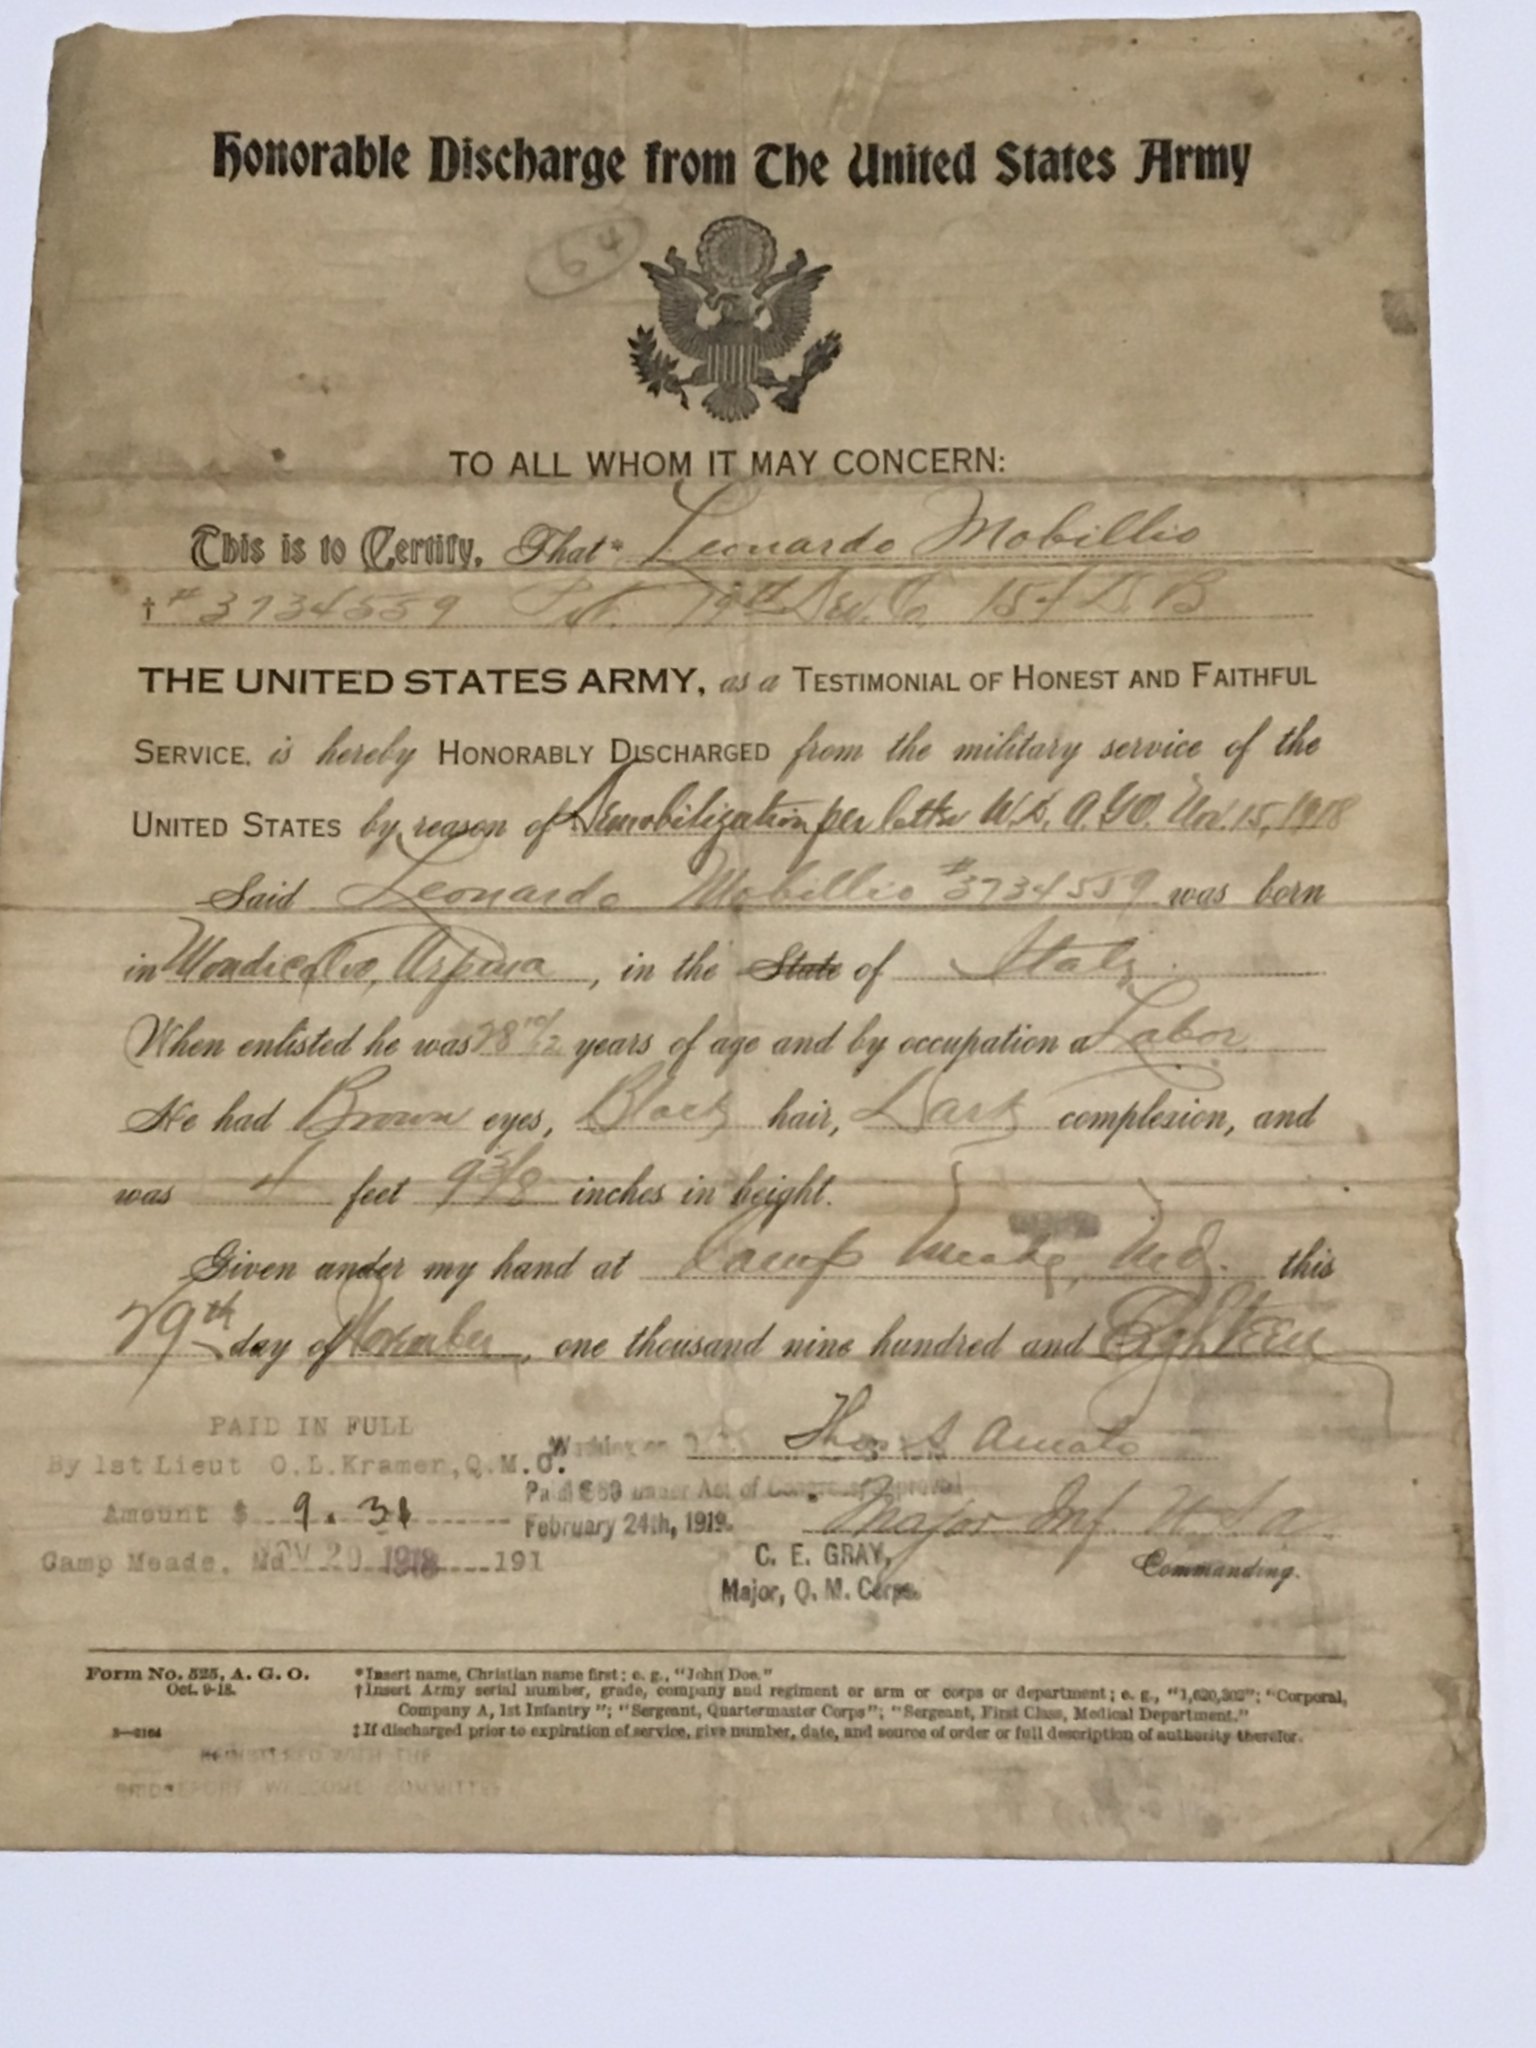 Honorable Discharge from The United States Army
64
TO ALL WHOM IT MAY CONCERN:
This is to Certify, That* Leonardo Mobillio
† # 3734559 Pvt. 79th Dev. Co. 154 D. B
THE UNITED STATES ARMY, as a TESTIMONIAL OF HONEST AND FAITHFUL
SERVICE, is hereby HONORABLY DISCHARGED from the military service of the
UNITED STATES by reason of Demobilization per letter W.D. A.G.O. Nov. 15, 1918
Said Leonardo Mobillio #3734559 was born
in , in the State of Italy
When enlisted he was 28 10/12 years of age and by occupation a Labor
He had Brown eyes, Black hair, Dark complexion, and
was 4 feet 9 3/8 inches in height.
Given under my hand at Camp Meade, Md. this
29th day of November, one thousand nine hundred and Eighteen
PAID IN FULL
By 1st Lieut O.L.Kramer,Q.M.C.
Amount $ 9.31
Camp Meade, Md NOV 20 1918 191
Washington
Paid $60 under Act of Congress approved
February 24th, 1919.
C. E. GRAY,
Major, Q. M. Corps.
Major Inf. U.S.A.
Commanding.
Form No. 525, A. G. O.
Oct. 9-18.
3—2164
*Insert name, Christian name first; e. g., "John Doe."
†Insert Army serial number, grade, company and regiment or arm or corps or department; e. g., "1,620,302"; "Corporal,
Company A, 1st Infantry"; "Sergeant, Quartermaster Corps"; "Sergeant, First Class, Medical Department."
‡If discharged prior to expiration of service, give number, date, and source of order or full description of authority therefor.
REGISTERED WITH THE
BRIDGEPORT WELCOME COMMITTEE